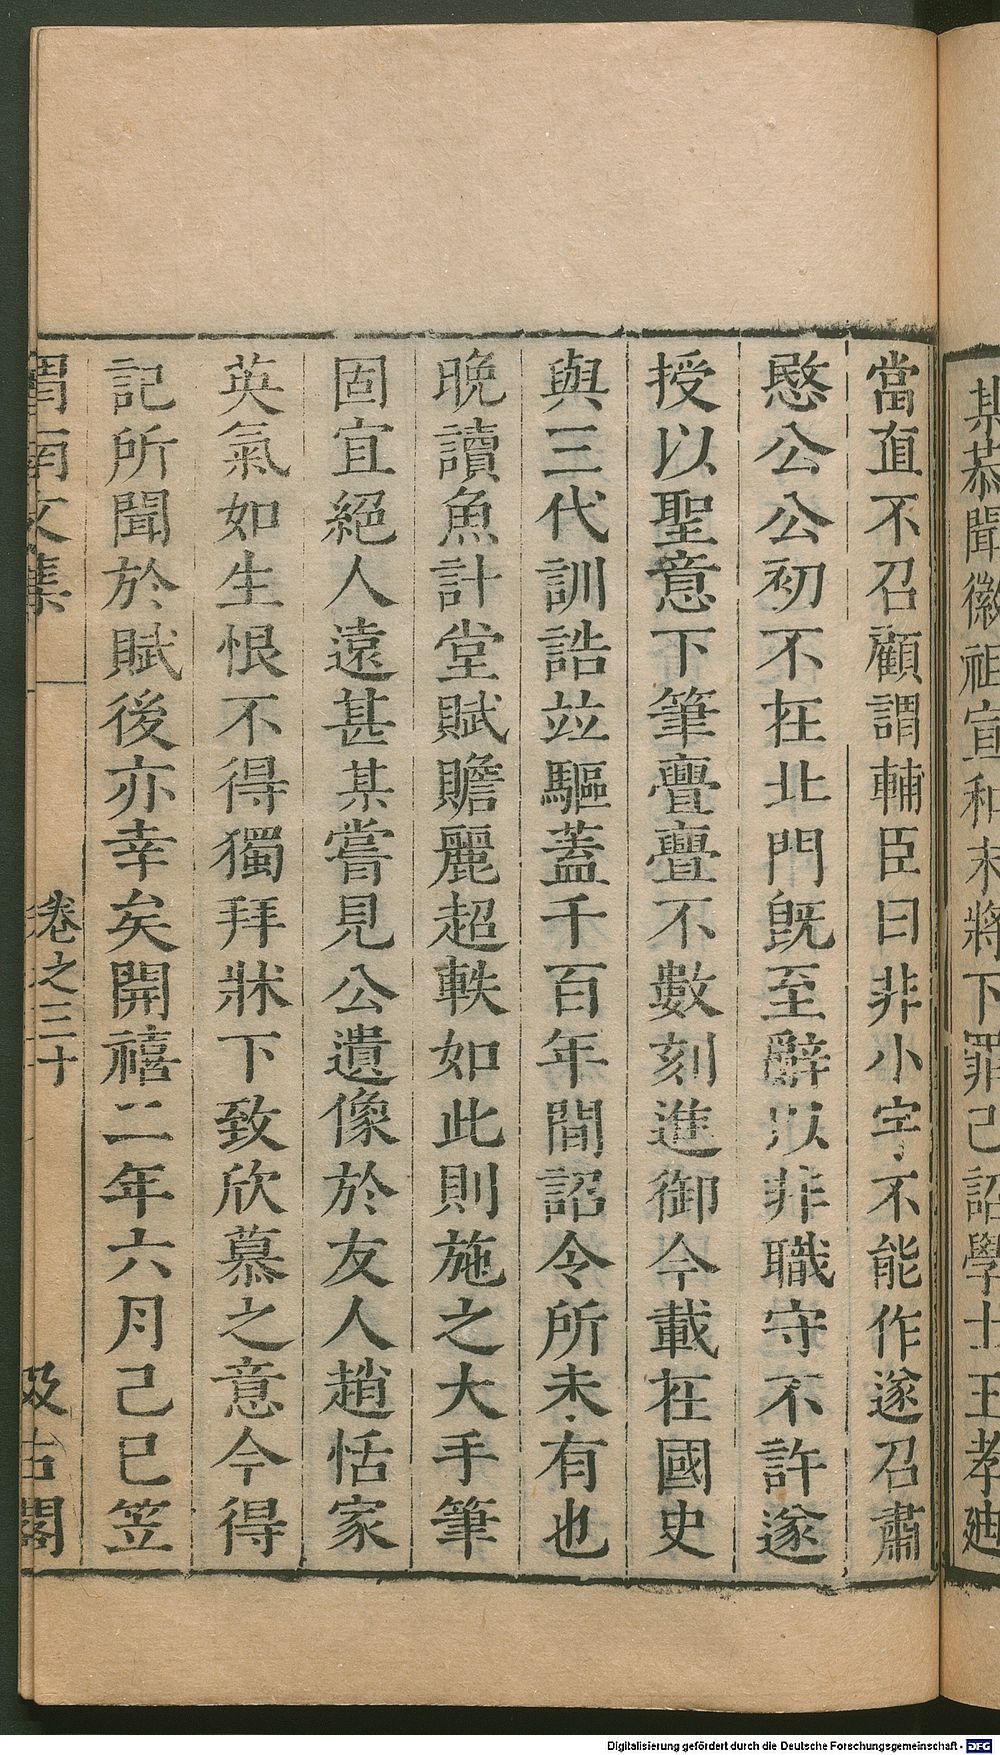 某慕聞徽祖宣和末將下罪己詔學士王孝迪
當直不召顧謂輔臣曰非小字不能作遂召肅
愍公公初不在北門旣至辭以非職守不許遂
授以聖意下筆亹亹不數刻進御今載在國史
與三代訓誥竝驅蓋千百年間詔令所未有也
晚讀魚計堂賦贍麗超軼如此則施之大手筆
固宜絕人遠甚某嘗見公遺像於友人趙恬家
英氣如生恨不得獨拜牀下致欣慕之意今得
記所聞於賦後亦幸矣開禧二年六月己巳笠
渭南文集 卷之三十 汲古閣
Digitalisierung gefördert durch die Deutsche Forschungsgemeinschaft - DFG